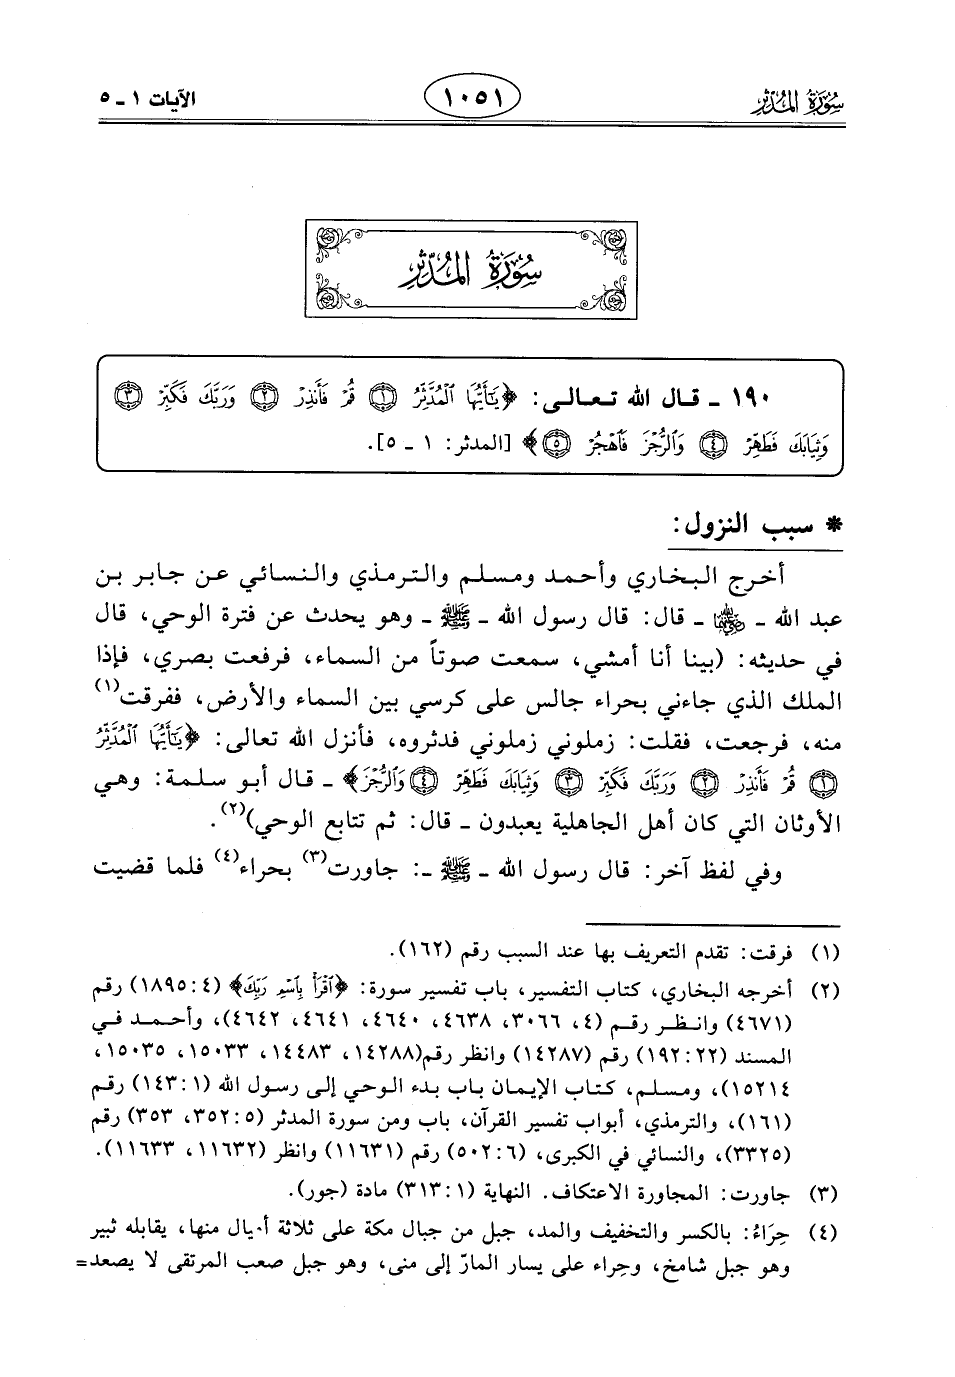 سورة المدثر
١٠٥١
الآيات ١ ـ ٥
سورة المدثر
١٩٠ ـ قال الله تعالى: ﴿يَٰٓأَيُّهَا ٱلۡمُدَّثِّرُ ١ قُمۡ فَأَنذِرۡ ٢ وَرَبَّكَ فَكَبِّرۡ ٣
وَثِيَابَكَ فَطَهِّرۡ ٤ وَٱلرُّجۡزَ فَٱهۡجُرۡ ٥﴾ [المدثر: ١ ـ ٥].
* سبب النزول:
أخرج البخاري وأحمد ومسلم والترمذي والنسائي عن جابر بن
عبد الله ـ رضي الله عنهما ـ قال: قال رسول الله ـ ﷺ ـ وهو يحدث عن فترة الوحي، قال
في حديثه: (بينا أنا أمشي، سمعت صوتاً من السماء، فرفعت بصري، فإذا
الملك الذي جاءني بحراء جالس على كرسي بين السماء والأرض، ففرقت(١)
منه، فرجعت، فقلت: زملوني زملوني فدثروه، فأنزل الله تعالى: ﴿يَٰٓأَيُّهَا ٱلۡمُدَّثِّرُ
١ قُمۡ فَأَنذِرۡ ٢ وَرَبَّكَ فَكَبِّرۡ ٣ وَثِيَابَكَ فَطَهِّرۡ ٤ وَٱلرُّجۡزَ﴾ ـ قال أبو سلمة: وهي
الأوثان التي كان أهل الجاهلية يعبدون ـ قال: ثم تتابع الوحي)(٢).
وفي لفظ آخر: قال رسول الله ـ ﷺ ـ: جاورت(٣) بحراء(٤) فلما قضيت
(١) فرقت: تقدم التعريف بها عند السبب رقم (١٦٢).
(٢) أخرجه البخاري، كتاب التفسير، باب تفسير سورة: ﴿ٱقۡرَأۡ بِٱسۡمِ رَبِّكَ﴾ (٤: ١٨٩٥) رقم
(٤٦٧١) وانظر رقم (٤، ٣٠٦٦، ٤٦٣٨، ٤٦٤٠، ٤٦٤١، ٤٦٤٢)، وأحمد في
المسند (٢٢: ١٩٢) رقم (١٤٢٨٧) وانظر رقم(١٤٢٨٨، ١٤٤٨٣، ١٥٠٣٣، ١٥٠٣٥،
١٥٢١٤)، ومسلم، كتاب الإيمان باب بدء الوحي إلى رسول الله (١: ١٤٣) رقم
(١٦١)، والترمذي، أبواب تفسير القرآن، باب ومن سورة المدثر (٥: ٣٥٢، ٣٥٣) رقم
(٣٣٢٥)، والنسائي في الكبرى، (٦: ٥٠٢) رقم (١١٦٣١) وانظر (١١٦٣٢، ١١٦٣٣).
(٣) جاورت: المجاورة الاعتكاف. النهاية (١: ٣١٣) مادة (جور).
(٤) حِرَاءُ: بالكسر والتخفيف والمد، جبل من جبال مكة على ثلاثة أميال منها، يقابله ثبير
وهو جبل شامخ، وحِراء على يسار المارّ إلى منى، وهو جبل صعب المرتقى لا يصعد=